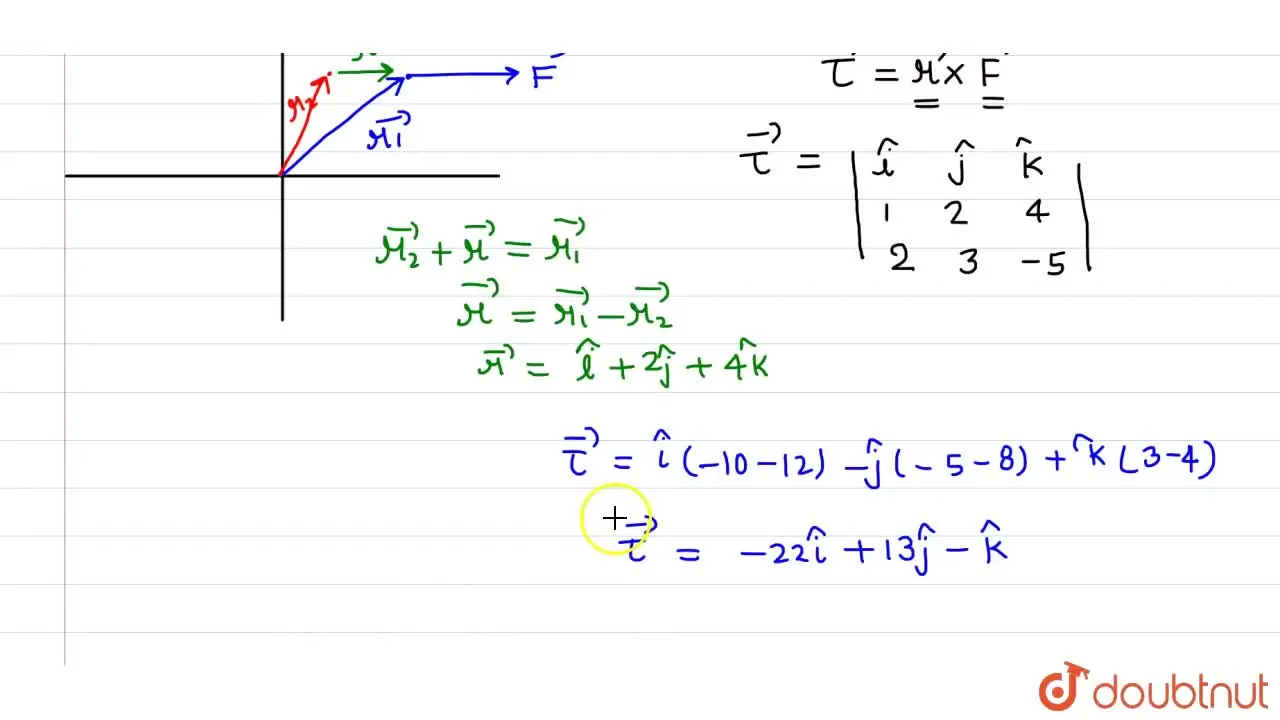 F⃗
r⃗₁
r₂
τ⃗ = r⃗ × F⃗
τ⃗ = | î ĵ k̂ |
1 2 4
2 3 -5
r⃗₂ + r⃗ = r⃗₁
r⃗ = r⃗₁ - r⃗₂
r⃗ = î + 2ĵ + 4k̂
τ⃗ = î (-10-12) - ĵ (-5-8) + k̂ (3-4)
τ⃗ = -22î + 13ĵ - k̂
doubtnut